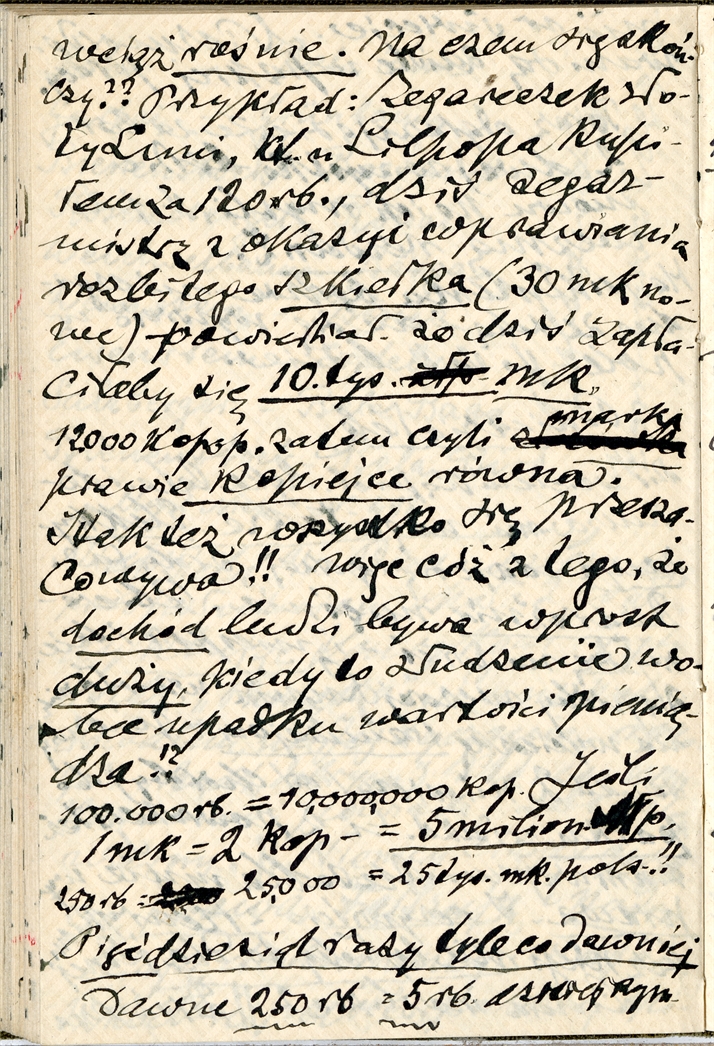 wciąż rośnie. Na czem się skoń-
czy?? Przykład: Zegareczek zło-
ty Luni, kt. u Lilpopa kupi-
łem za 120 rb., dziś zegar-
mistrz z okazyi wprawiania
rozbitego szkiełka (30 mk no-
we) powiedział że dziś zapła-
ciłaby się 10. tys. mk.
12000 kop. zatem czyli marka
prawie kopiejce równa.
I tak też wszystko się przesza-
cowywa!! Więc cóż z tego, że
dochód ludzi bywa wprost
duży, kiedy to złudzenie wo-
bec upadku wartości pienią-
dza!?
100.000 rb. = 10,000,000 kop. Jeśli
1 mk = 2 kop - = 5 milion.
250 rb = 25,000 = 25 tys. mk. pols.!!
Pięćdziesiąt razy tyle co dawniej
Dawne 250 rb = 5 rb.